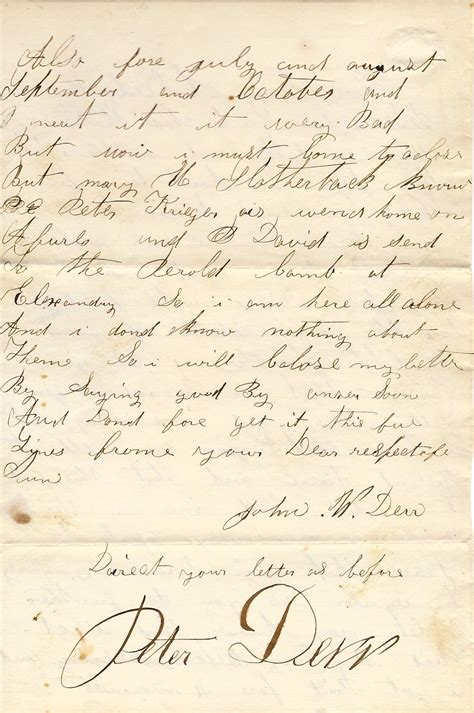 Also fore july and august
September and Octobes and
I neat it it very Bad
But now i must Come to aclose
But mary
Peter Krieger is wend home on
Afurlo and B David is send
to the Perold Camb at
Elexandry So i am here all alone
And i dond know nothing about
Theme So i will Colose my letter
By Saying good By anser Soon
And Dond fore get it this fue
Lines frome your Dear respectfe
Sun
John W. Derr
Direct your letter as before
Peter Derr